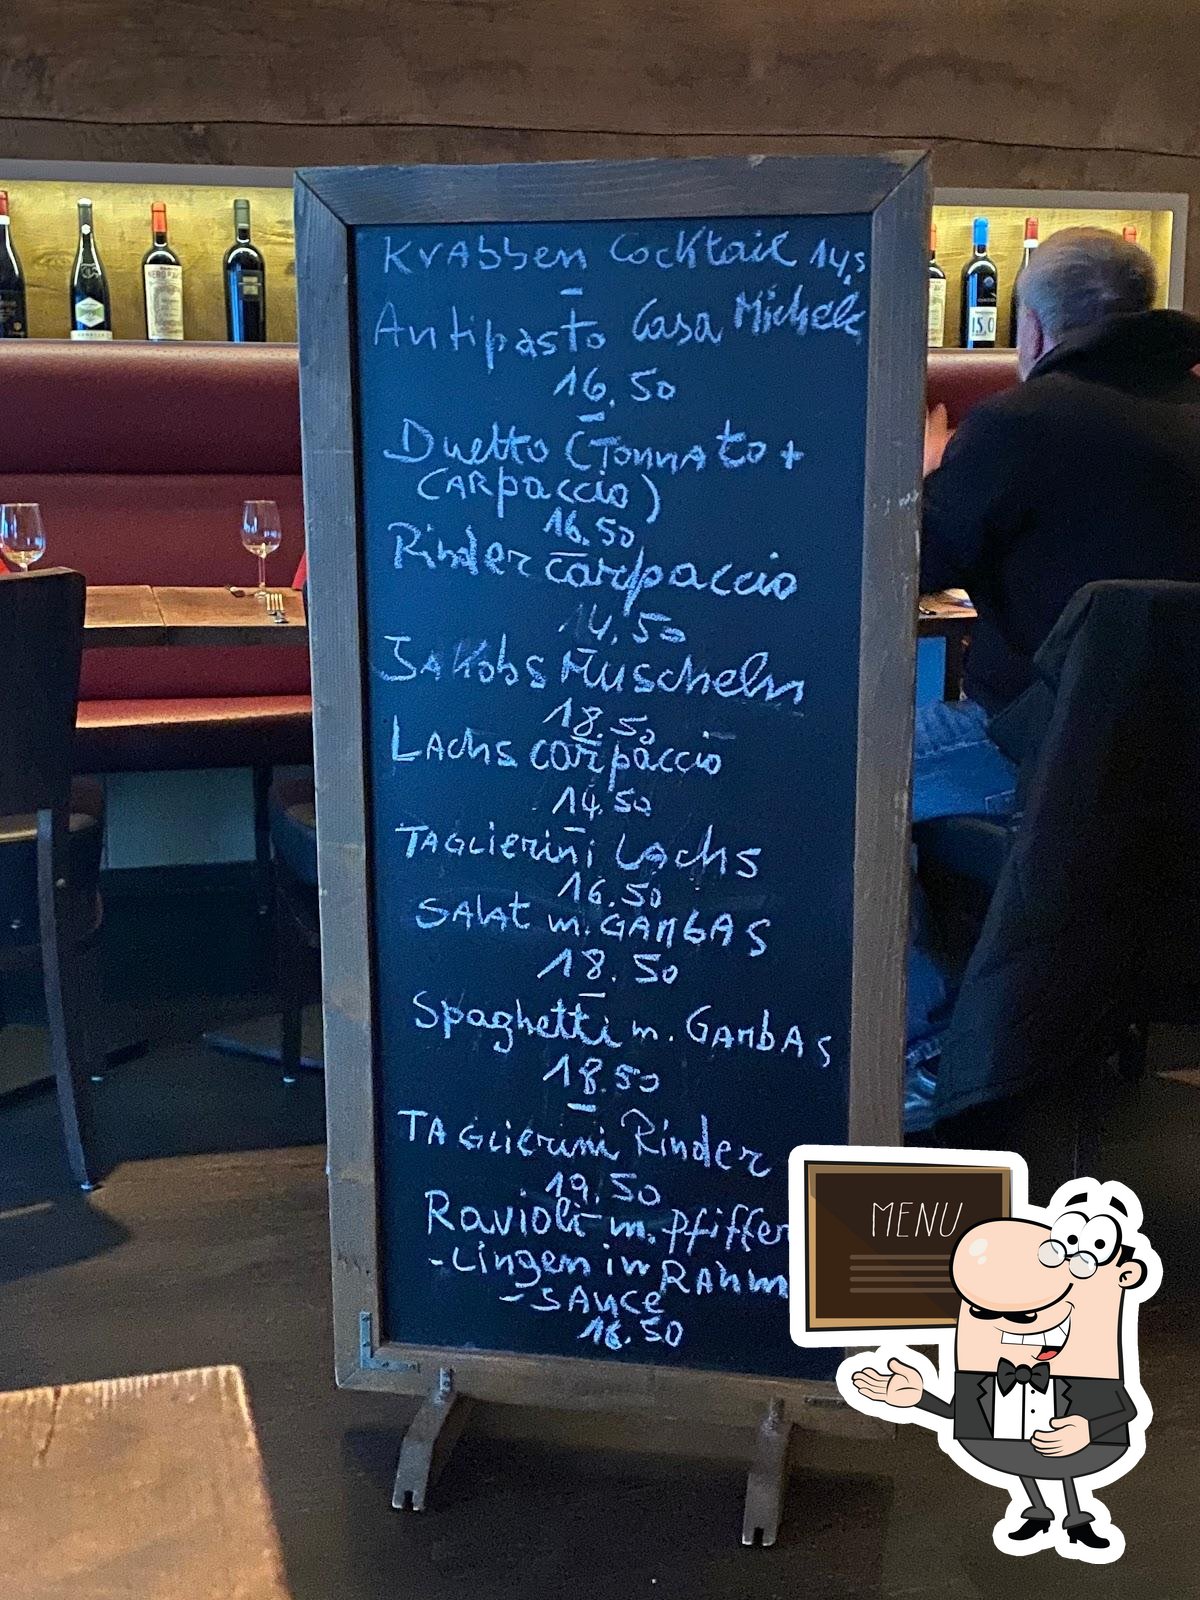 Krabben Cocktail 14,5
Antipasto Casa Michele
16.50
Duetto (Tonnato +
Carpaccio)
16.50
Rinder carpaccio
14,50
Jakobs Muscheln
18.50
Lachs carpaccio
14.50
Taglierini Lachs
16.50
Salat m. Gambas
18.50
Spaghetti m. Gambas
18.50
Taglierini Rinder
19.50
Ravioli m. Pfiffer
-Lingen in Rahm
-Sauce
16.50
MENU